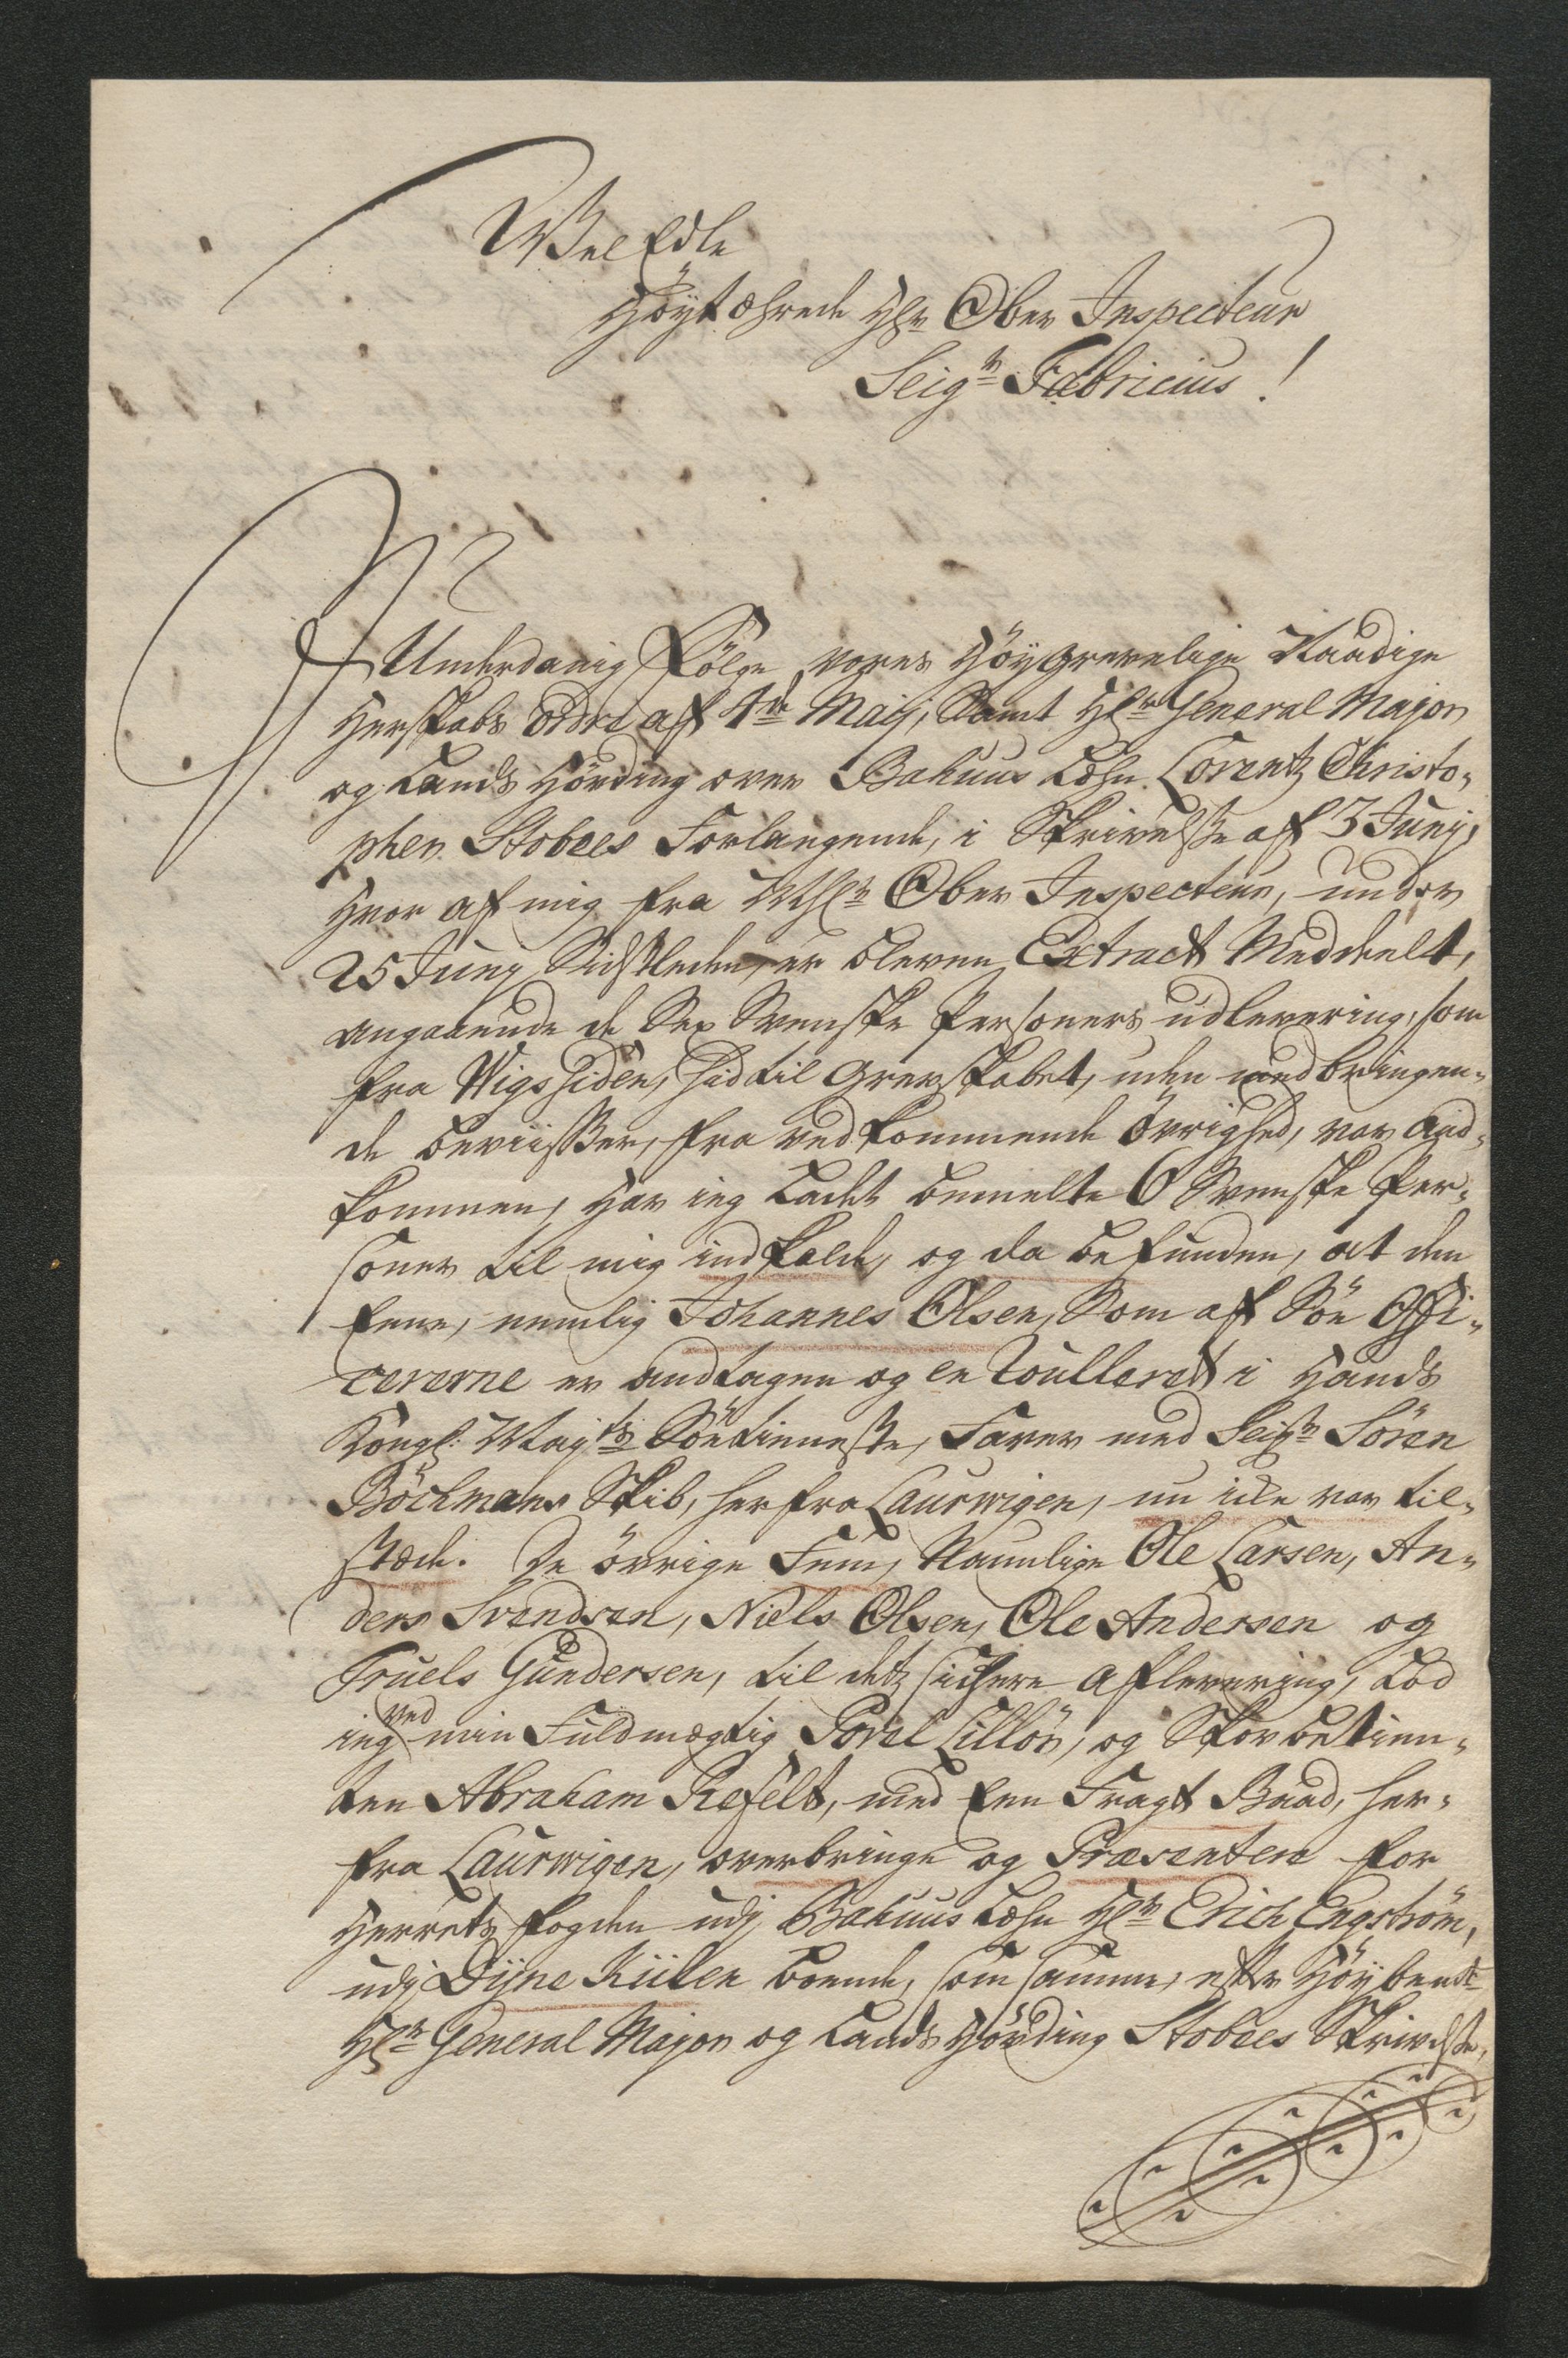 Wel Edle
Höyt ærede Hr Ober Inspecteur
Seigr Fabricius!
I Underdanig Følge vores Höygrevelige Naadige
Herskabs ordre af 4de Maij, Samt Hr General Major
og Lands Hövding over Bahuus Læhn Lorentz Christo-
pher Stobees Forlangende, i Skrivelse af 3 Junij,
Hvor af mig fra Hr Ober Inspecteur, under
25 Junij Sidstleden, er bleven Extract Meddeelt,
angaaende de Sex Svenske Personers udlevering, som
fra Wigssiden, hid til Grevskabet, uden medbringen-
de beviisser, fra vedkommende Övrighed, var and-
kommen, Har ieg Ladet bemelte 6 Svenske Per-
soner til mig indkalde, og da befunden, at den
Eene, nemlig Johannes Olsen, Som af Söe Offi-
cererne er andtagen og en Roulleret i Hands
Kongl: Maijts Söe tienneste, Farer med Seigr Sören
Böckmans Skib, her fra Laurwigen, nu icke var til-
stæde. De övrige Fem, Naunlige Ole Larsen, An-
ders Svendsen, Niels Olsen, Ole Andersen og
Truels Gundersen, til detz sichere aflevering, Lod
ieg ved min Fuldmægtig Povel Lillöe, og Skov betien-
ten Abraham Refelt, med Een Fragt Baad, her-
fra Laurwigen, overbringe og Præsentere for
Herretz fogden udj Bahuus Læhn Hr Erich Engström,
udj Dyne Kiilen boende, som samme, efter Höybemte
Hr General Major og Lands Hövding Stobees Skrivelse,